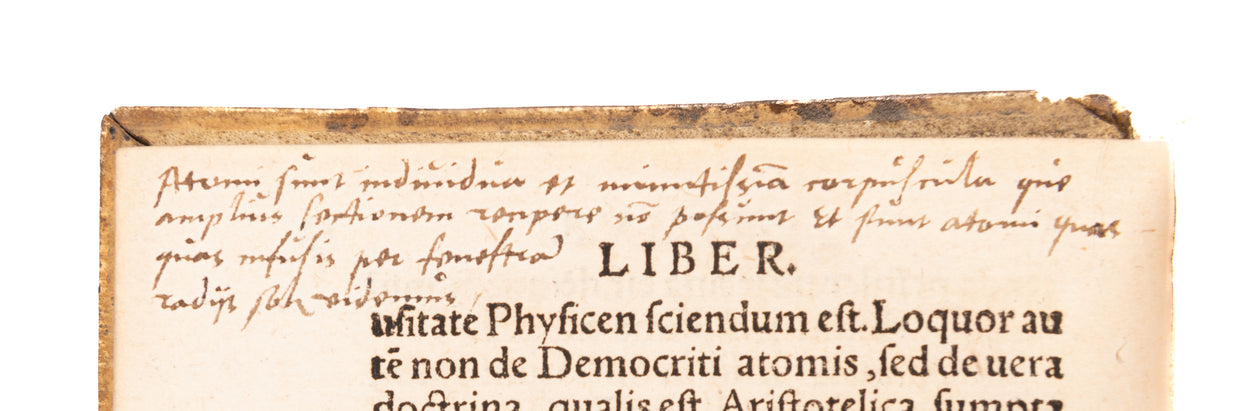 Atomi sunt indiuidua et minutissiā corpuscula que
amplius sectionem recipere nō possunt Et sunt atomi quas
quas infusis per fenestrā
LIBER.
radijs solis videmus,
usitate Physicen sciendum est. Loquor au
tē non de Democriti atomis, sed de uera
doctrina, qualis est Aristotelica, sumpta